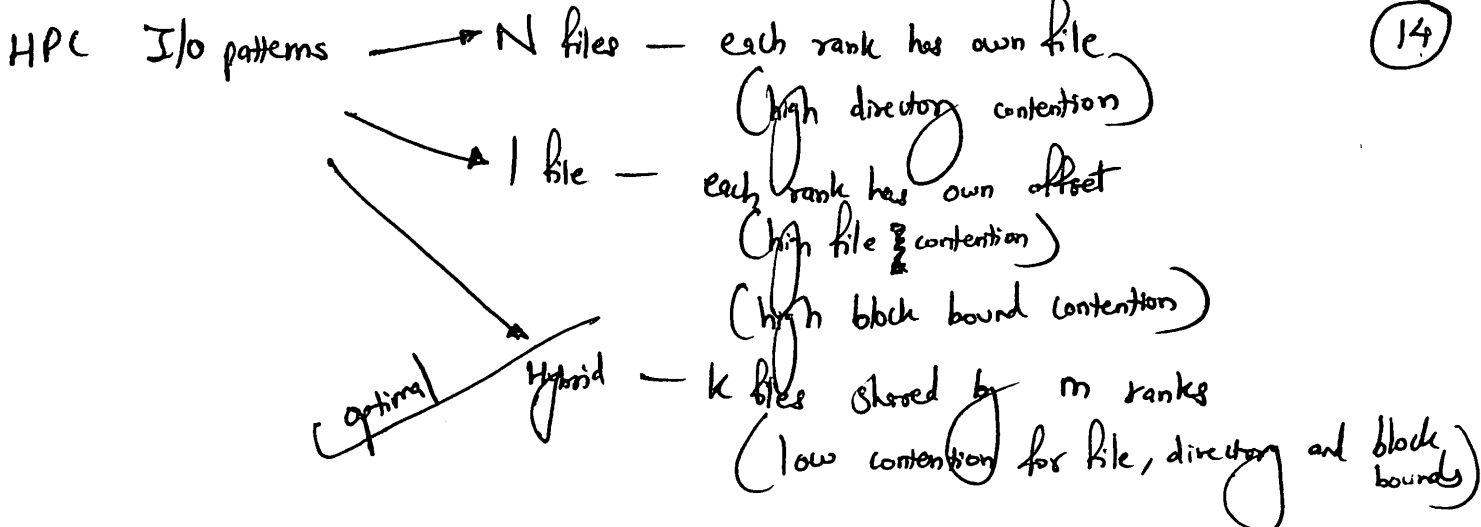 HPC I/o patterns → N files — each rank has own file
14
(high directory contention)
1 file — each rank has own offset
(high file contention)
(high block bound contention)
Hybrid — k files shared by m ranks
optimal
(low contention for file, directory and block bounds)